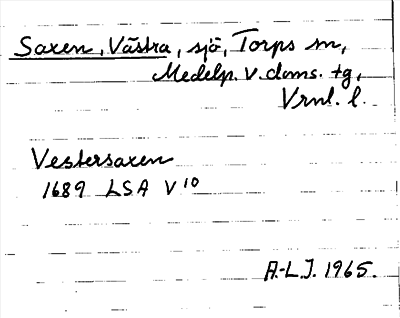 Saxen, Västra, sjö, Torps sn,
Medelp. v. doms. tg,
Vrnl. l.
Vestersaxen
1689 LSA V 10
A.-L.J. 1965.